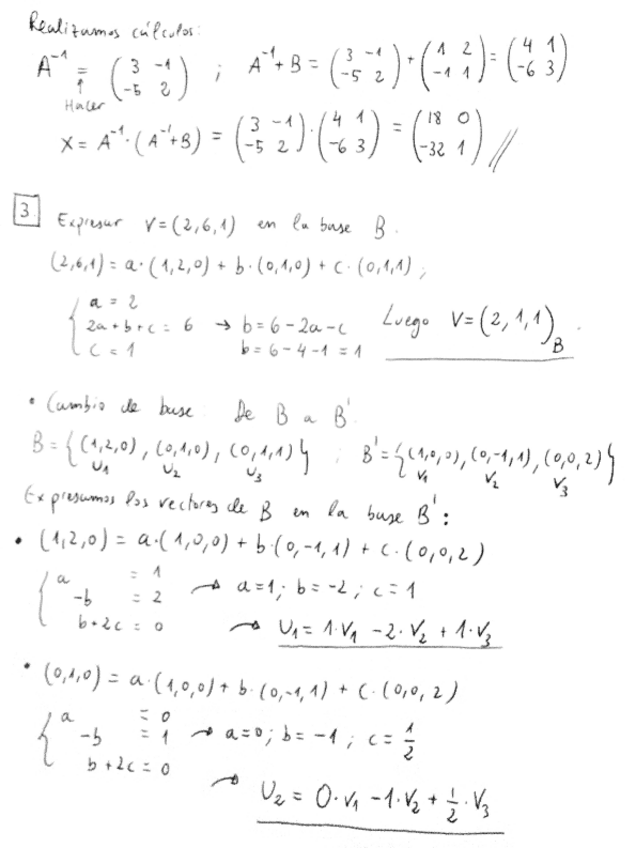 Realizamos cálculos:
A⁻¹ = (3 -1; -5 2) ; A⁻¹+B = (3 -1; -5 2) + (1 2; -1 1) = (4 1; -6 3)
↑
Hacer
X = A⁻¹·(A⁻¹+B) = (3 -1; -5 2)·(4 1; -6 3) = (18 0; -32 1) //
3 Expresar V=(2,6,1) en la base B.
(2,6,1) = a·(1,2,0) + b·(0,1,0) + c·(0,1,1);
{ a = 2
2a+b+c = 6 → b=6-2a-c Luego V=(2,1,1)_B.
c = 1 b=6-4-1=1
• Cambio de base: De B a B'.
B = {(1,2,0), (0,1,0), (0,1,1)} ; B' = {(1,0,0), (0,-1,1), (0,0,2)}
U₁ U₂ U₃ V₁ V₂ V₃
Expresamos los vectores de B en la base B':
• (1,2,0) = a·(1,0,0) + b·(0,-1,1) + c·(0,0,2)
{ a = 1
-b = 2 → a=1; b=-2; c=1
b+2c = 0 → U₁ = 1·V₁ - 2·V₂ + 1·V₃
• (0,1,0) = a·(1,0,0) + b·(0,-1,1) + c·(0,0,2)
{ a = 0
-b = 1 → a=0; b=-1; c=1/2
b+2c = 0
→ U₂ = 0·V₁ - 1·V₂ + 1/2·V₃